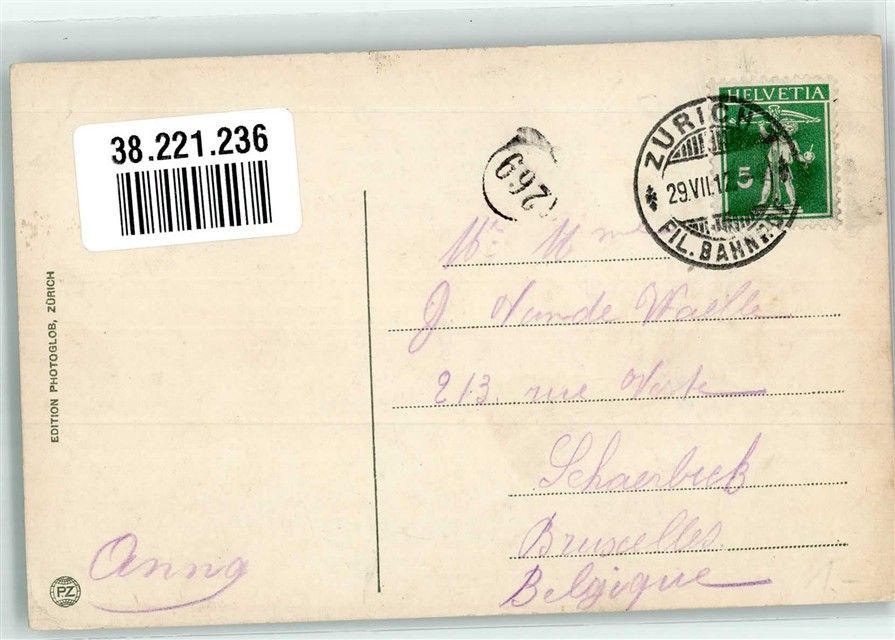 38.221.236
HELVETIA
5
ZÜRICH
29.VII.12.
FIL. BAHNHOF
269
Mr Mme
J. Vande Walle
213. rue Verte
Schaerbeek
Bruxelles
Belgique
EDITION PHOTOGLOB, ZÜRICH
Anna
PZ
1.-